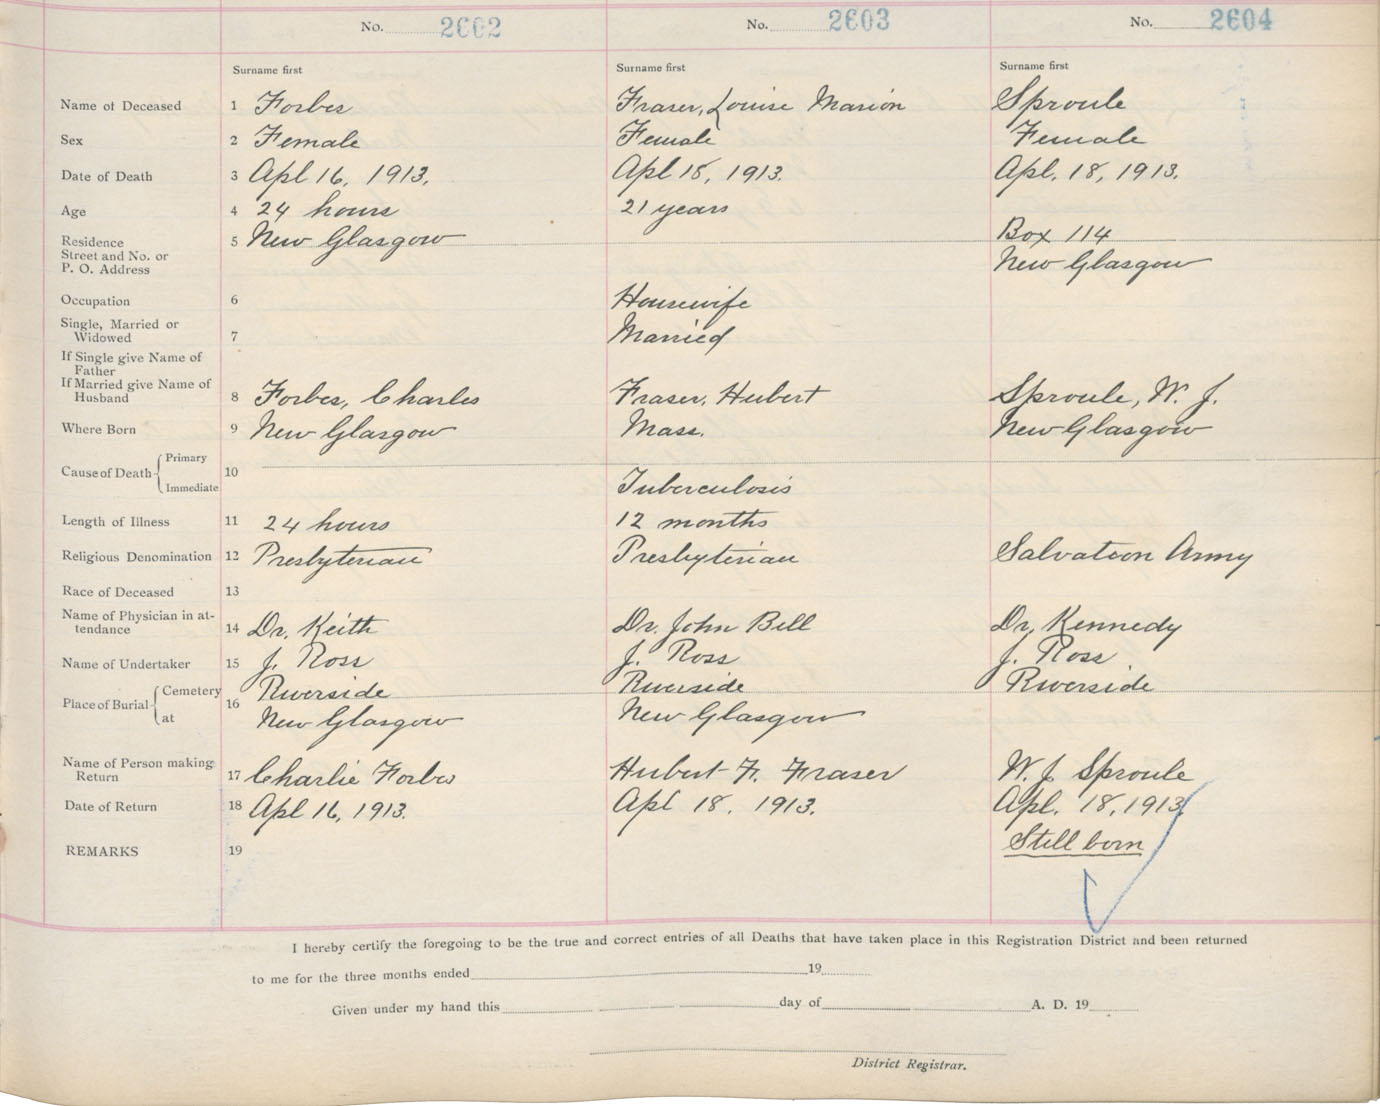 No. 2602 No. 2603 No. 2604
Surname first Surname first Surname first
Name of Deceased 1 Forbes Fraser, Louise Marion Sproule
Sex 2 Female Female Female
Date of Death 3 Apl 16, 1913. Apl 18, 1913. Apl. 18, 1913.
Age 4 24 hours 21 years
Residence 5 New Glasgow Box 114
Street and No. or
P. O. Address New Glasgow
Occupation 6 Housewife
Single, Married or
Widowed 7 Married
If Single give Name of
Father
If Married give Name of
Husband 8 Forbes, Charles Fraser, Hubert Sproule, W. J.
Where Born 9 New Glasgow Mass. New Glasgow
Cause of Death Primary 10
Immediate Tuberculosis
Length of Illness 11 24 hours 12 months
Religious Denomination 12 Presbyterian Presbyterian Salvation Army
Race of Deceased 13
Name of Physician in at-
tendance 14 Dr. Keith Dr. John Bell Dr. Kennedy
Name of Undertaker 15 J. Ross J. Ross J. Ross
Place of Burial Cemetery 16 Riverside Riverside Riverside
at New Glasgow New Glasgow
Name of Person making
Return 17 Charlie Forbes Hubert F. Fraser W. J. Sproule
Date of Return 18 Apl 16, 1913. Apl 18, 1913. Apl. 18, 1913
REMARKS 19 Still born
I hereby certify the foregoing to be the true and correct entries of all Deaths that have taken place in this Registration District and been returned
to me for the three months ended 19
Given under my hand this day of A. D. 19
District Registrar.